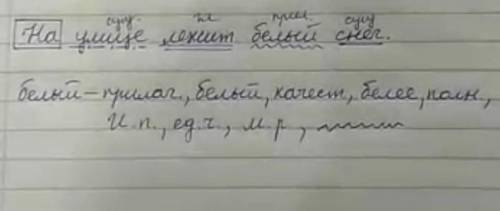 сущ. гл. прил. сущ.
На улице лежит белый снег.
белый – прилаг., белый, качест, белее, полн,
И.п., ед.ч., м.р,